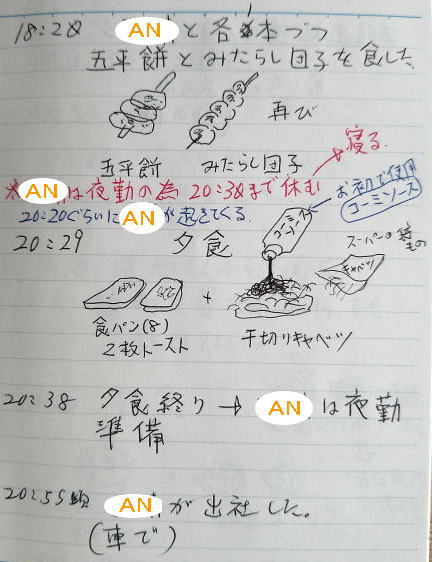 18:28 ANと各1本づつ
五平餅とみたらし団子を食した。
再び
五平餅 みたらし団子
ANは夜勤の為 20:38まで休む → 寝る。
20:20ぐらいにANが起きてくる。
お初で使用
コーミソース
20:29 夕食
コーミソース
スーパーの
キャベツ
+
食パン(8)
2枚トースト
千切りキャベツ
20:38 夕食終り → ANは夜勤
準備
20:55頃 ANが出社した。
(車で)